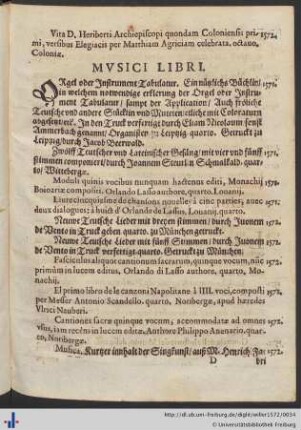 Vita D. Heriberti Archiepiscopi quondam Coloniensis pri- 1572.
mi, versibus Elegiacis per Matthiam Agricium celebrata. octauo,
Coloniæ.
MVSICI LIBRI.
ORgel oder Instrument Tabulatur. Ein nützlichs Büchlin/ 1571.
in welchem notwendige erklerung der Orgel oder Instru-
ment Tabulatur/ sampt der Application/ Auch fröliche
Teutsche vnd andere Stücklin vnd etliche mit Coloraturn
abgesetzt. In den Truck verfertigt durch Eliam Nicolaum sonst
Ammerbach genant/ Organisten zu Leipzig quarto. Getruckt zu
Leipzig/ durch Jacob Beerwald.
Zwölff Teutscher vnd Lateinischer Gesäng/ mit vier vnd fünff 1571.
stimmen componiert/ durch Joannem Steurl zu Schmalkald. quar-
to/ Witteberge.
Modulis quinis vocibus nunquam hactenus editi, Monachij 1571.
Boioariæ compositi. Orlando Lasso authore, quarto, Louanij.
Liure cincquiesme de chansons nouelles à cinc parties, auec 1571.
deux dialogues: à huict d'Orlande de Lassus. Louanij, quarto.
Neuwe Teutsche Lieder mit dreyen stimmen/ durch Juonem 1572.
de Vento in Truck geben quarto. zu München getruckt.
Neuwe Teutsche Lieder mit fünff Stimmen/ durch Juonem 1572.
de Vento in Truck verfertigt quarto. Getruckt zu München.
Fasciculi aliquot cantionum sacrarum, quinque vocum, nūc 1572.
primùm in lucem editus, Orlando di Lasso authore, quarto, Mo-
nachij.
El primo libro de le canzoni Napolitane à IIII. voci, composti 1572.
per Messer Antonio Scandello. quarto, Noribergæ, apud hæredes
Vlrici Neuberi.
Cantiones sacræ quinque vocum, accommodatæ ad omnes 1572.
vsus, iam recèns in lucem editæ, Authore Philippo Auenario, quar-
to, Noribergæ.
Musica. Kurtzer innhalt der Singkunst/ auß M. Henrich Fa- 1572.
D bri
http://dl.ub.uni-freiburg.de/diglit/willer1572/0034
© Universitätsbibliothek Freiburg